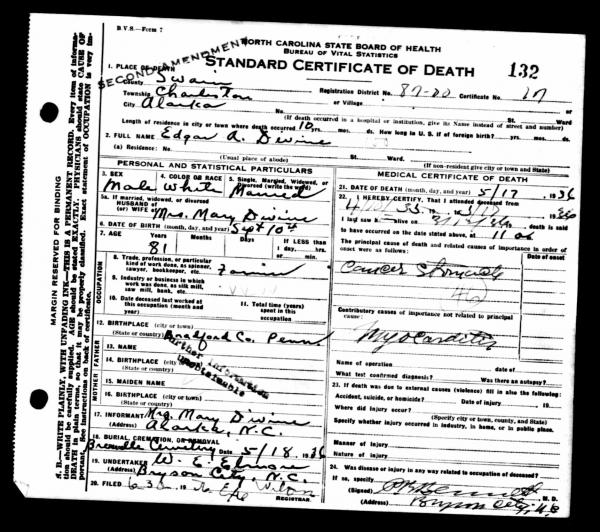 B.V.S.—Form 7
NORTH CAROLINA STATE BOARD OF HEALTH
BUREAU OF VITAL STATISTICS
SECOND AMENDMENT
STANDARD CERTIFICATE OF DEATH 132
1. PLACE OF DEATH
County Swain Registration District No. 87-20 Certificate No. 17
Township Charleston or Village
City Alarka No. St. Ward
(If death occurred in a hospital or institution, give its Name instead of street and number)
Length of residence in city or town where death occurred 10 yrs. mos. ds. How long in U. S. if of foreign birth? yrs. mos. ds.
2. FULL NAME Edgar A. Devine
(a) Residence: No. St. Ward.
(Usual place of abode) (If non-resident give city or town and State)
PERSONAL AND STATISTICAL PARTICULARS
3. SEX Male
4. COLOR OR RACE White
5. Single, Married, Widowed, or Divorced (write the word) Married
5a. If married, widowed, or divorced
HUSBAND of
(or) WIFE of Mrs. Mary Divine
6. DATE OF BIRTH (month, day, and year) Sept 10th
7. AGE Years 81 Months Days If LESS than 1 day, hrs. or min.
OCCUPATION
8. Trade, profession, or particular kind of work done, as spinner, sawyer, bookkeeper, etc. Farmer
9. Industry or business in which work was done, as silk mill, saw mill, bank, etc.
10. Date deceased last worked at this occupation (month and year)
11. Total time (years) spent in this occupation
12. BIRTHPLACE (city or town) Bradford Co. Penn
(State or country)
FATHER
13. NAME
14. BIRTHPLACE (city or town)
(State or country)
Further information unobtainable
MOTHER
15. MAIDEN NAME
16. BIRTHPLACE (city or town)
(State or country)
17. INFORMANT Mrs. Mary Divine
(Address) Alarka, N.C.
18. BURIAL, CREMATION, OR REMOVAL
Cemetery 5/18, 1936
19. UNDERTAKER W. E. Elmore
(Address) Bryson City, N.C.
20. FILED
REGISTRAR
MEDICAL CERTIFICATE OF DEATH
21. DATE OF DEATH (month, day, and year) 5/17, 1936
22. I HEREBY CERTIFY, That I attended deceased from
I last saw h alive on death is said
to have occurred on the date stated above, at m.
The principal cause of death and related causes of importance in order of onset were as follows: Date of onset
Cancer Stomach
46
Contributory causes of importance not related to principal cause:
Myocarditis
Name of operation date of
What test confirmed diagnosis? Was there an autopsy?
23. If death was due to external causes (violence) fill in also the following:
Accident, suicide, or homicide? Date of injury 19
Where did injury occur?
(Specify city or town, county, and State)
Specify whether injury occurred in industry, in home, or in public place.
Manner of Injury
Nature of Injury
24. Was disease or injury in any way related to occupation of deceased?
If so, specify
(Signed) M. D.
(Address) Bryson City, N.C.
MARGIN RESERVED FOR BINDING
N. B.—WRITE PLAINLY, WITH UNFADING INK—THIS IS A PERMANENT RECORD. Every item of information should be carefully supplied. AGE should be stated EXACTLY. PHYSICIANS should state CAUSE OF DEATH in plain terms, so that it may be properly classified. Exact statement of OCCUPATION is very important. See instructions on back of certificate.